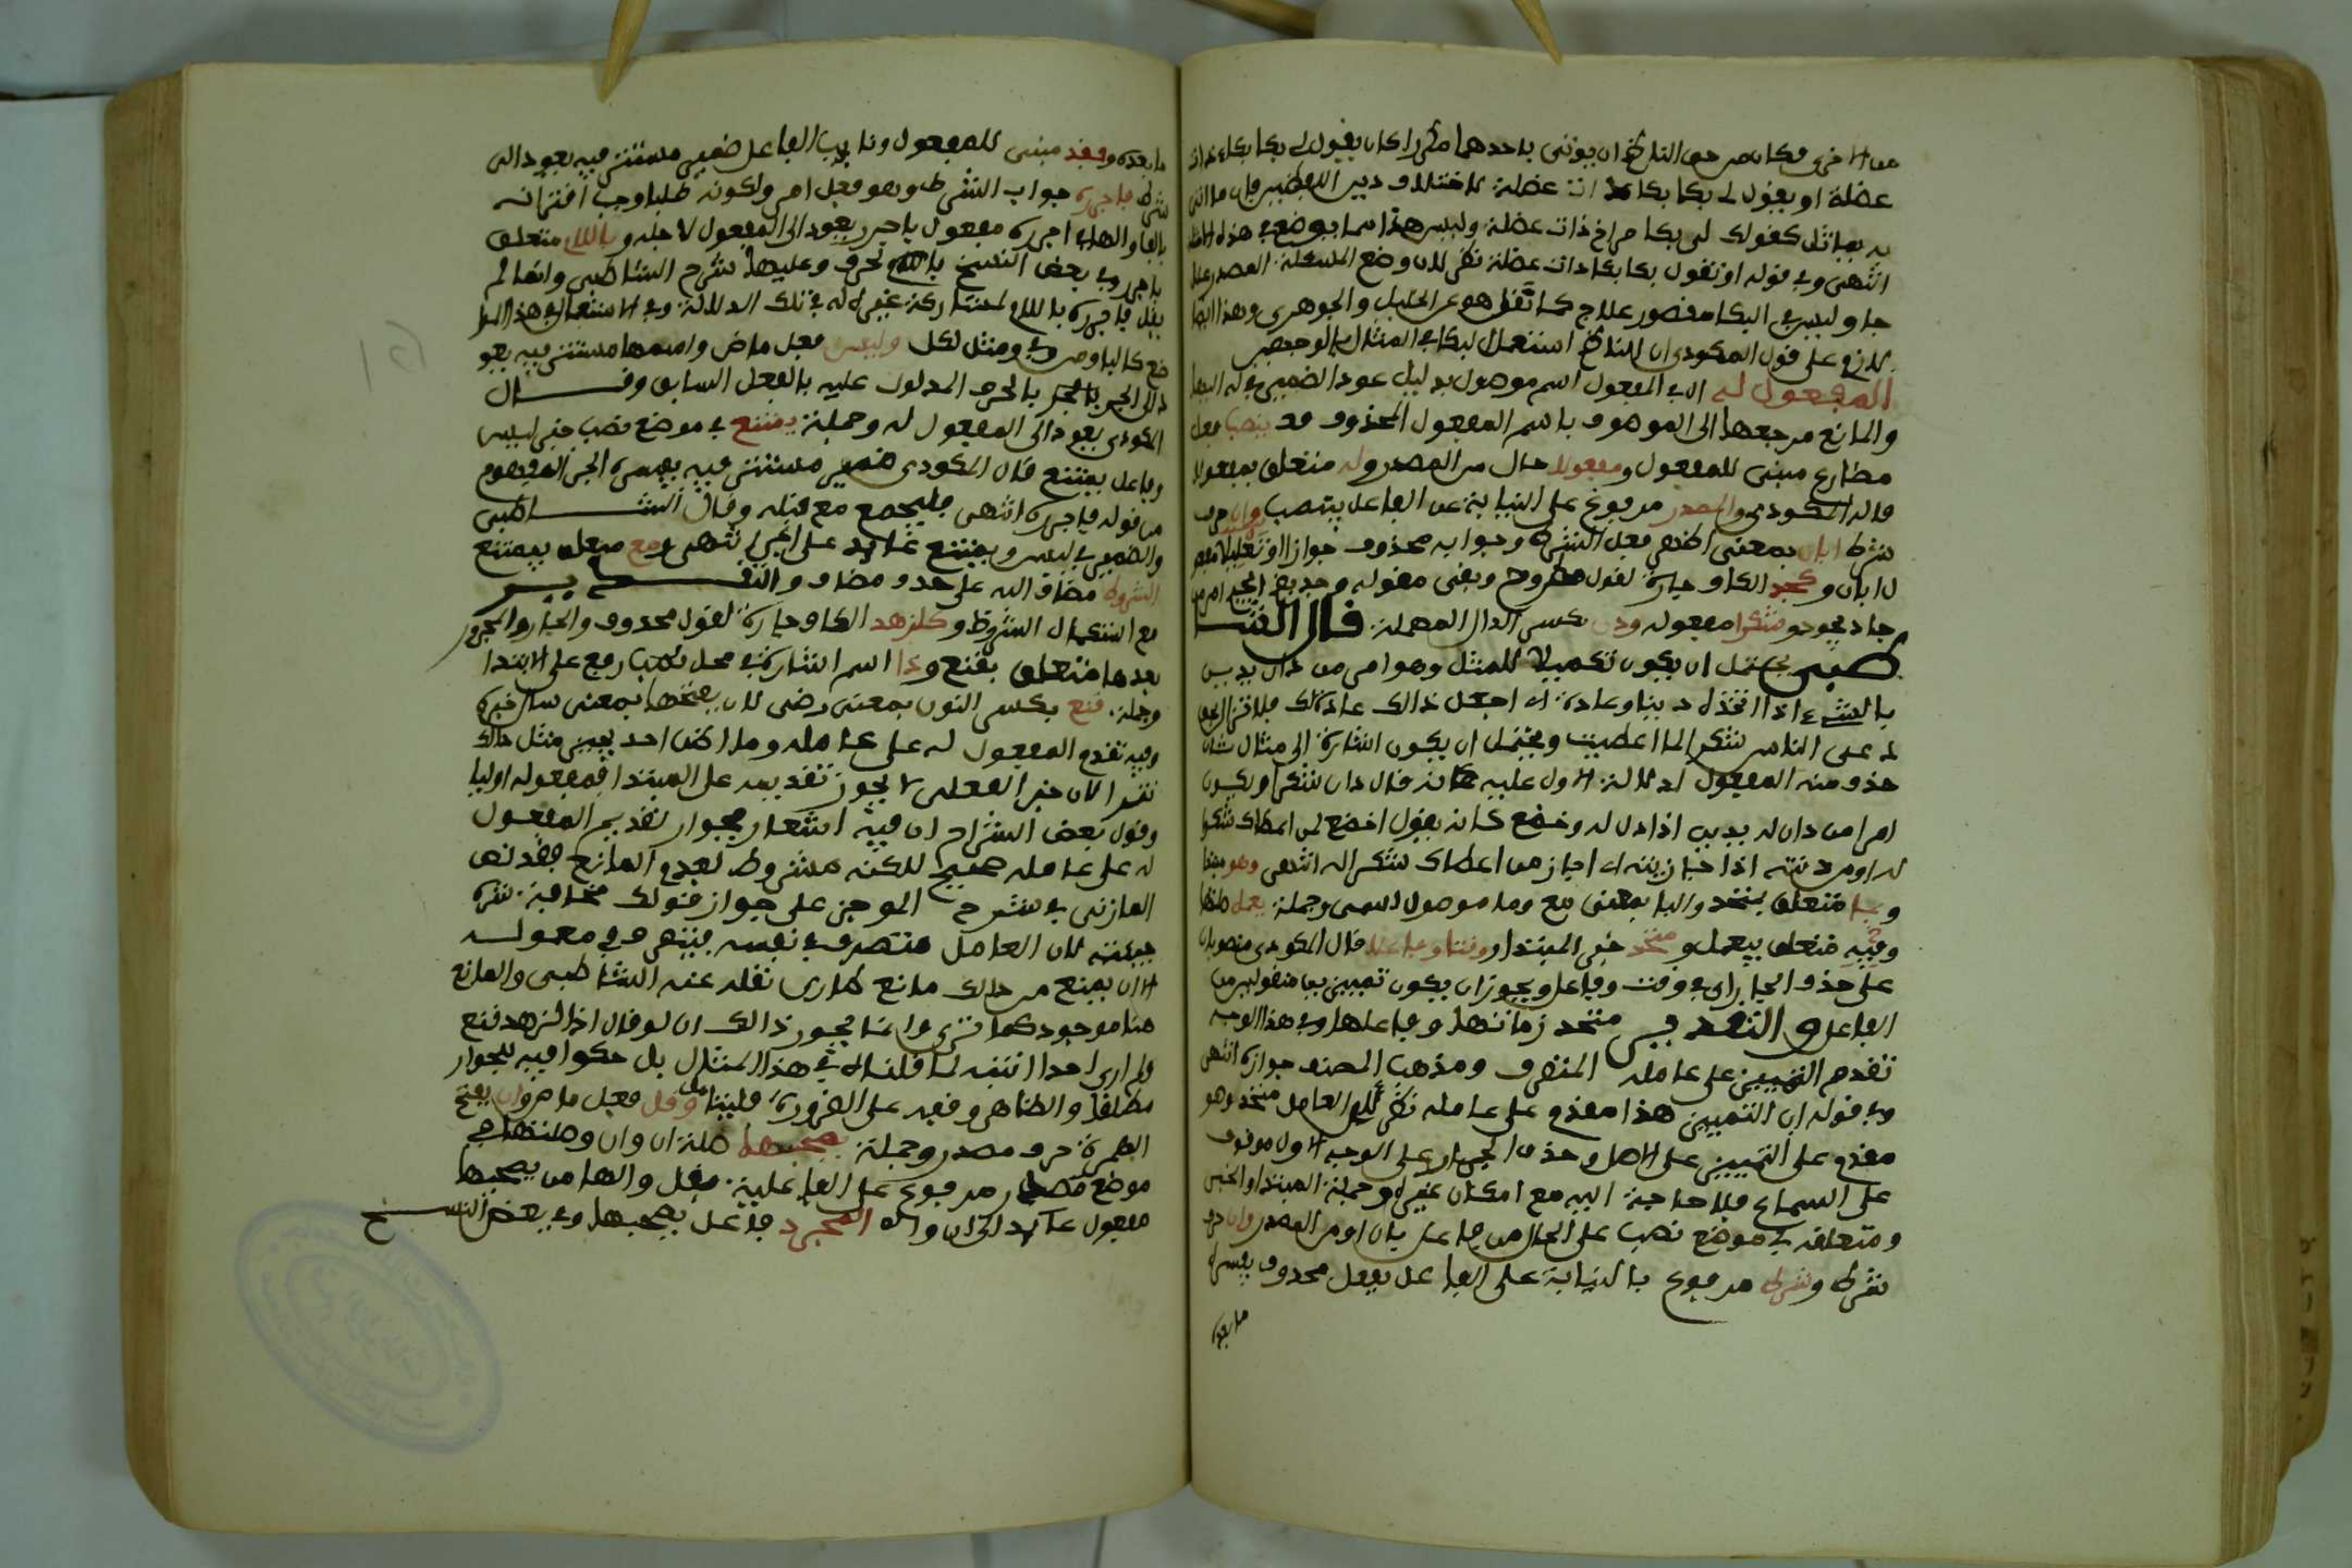 من الاخرى فكان من حق الناظم ان يوتى باحدهما مكررا كان يقول لي بكا بكاء ذات
عضلة او يقول لي بكا بكا ذات عضلة لاختلاف دين اللفظين فان ما اتى
به يماثل كقولك لي بكا صراخ ذات عضلة وليس هذا مما يوضع في هذه
انتهى وفي قوله او تقول بكا بكا ذات عضلة نظر لان وضع المسئلة المصدر علا
جا وليس في البكا مقصور علاج كما تقدم عن الخليل والجوهري وهذا ايضا
للازم على قول المكودي ان الناظم استعمل البكا في المثال بالوجهين
المفعول له ال في المفعول اسم موصول بدليل عود الضمير في له اليها
والمانع مرجعها الى الموصوف باسم المفعول المحذوف قد ينصب فعل
مضارع مبني للمفعول ومفعولا حال من المصدر وله متعلق بمفعولا
قاله المكودي والمصدر مرفوع على النيابة عن الفاعل ينتصب وان حرف
شرط ابان بمعنى اظهر فعل الشرط وجوابه محذوف جوازا وتعليلا مفعو
ل ابان وكجد الكاف جارة لقول مطروح وبقي مقوله وجد بضم الجيم امر من
جاد يجود وشكرا مفعوله ودن بكسر الدال المهملة قال الشا
طبي يحتمل ان يكون تكميلا للمثل وهو امر من دان يدين
بالشيء اذا اتخذه دينا وعادة اي اجعل ذالك عادتك
له على الناس شكرا لما اعطيت ويحتمل ان يكون اشارة الى مثال ثان
حذف منه المفعول له لدلالة الاول عليه كانه قال دان شكرا ويكون
امرا من دان له يدين اذا ذل له وخضع كانه يقول اخضع لمن اعطاك شكرا
له او من دنته اذا جازيته اي اجاز من اعطاك شكرا له انتهى وهو مبتدا
وبما متعلق بمتحد والبا بمعنى مع وما موصول اسمي وجملة يعمل صلتها
وفيه متعلق بيعمل ومتحد خبر المبتدا ووقتا وفاعلا قال المكودي منصوبان
على حذف الجار اي في وقت وفاعل ويجوز ان يكون تمييزين منقولين من
الفاعل والتقدير متحد زمانها وفاعلها وفي هذا الوجه
تقدم التمييز على عامله المتصرف ومذهب المصنف جوازه انتهى
وفي قوله ان التمييز هذا مقدم على عامله نظر لان العامل متحد وهو
مقدم على التمييز على الاصل وحذف الجار على الوجه الاول موقوف
على السماع فلا حاجة اليه مع امكان غيره وجملة المبتدا والخبر
ومتعلقه في موضع نصب على الحال من فاعل بان او من المصدر وان حرف
شرط وشرط مرفوع بالنيابة على الفاعل بفعل محذوف يفسره
ما بعده
ما بعده وفقد مبني للمفعول ونايب الفاعل ضمير مستتر فيه يعود الى
شرط فاجرره جواب الشرط وهو فعل امر ولكونه طلبا وجب اقترانه
بالفا والهاء اجرره مفعول باجرر يعود الى المفعول لاجله وباللام متعلق
باجرر وفي بعض النسخ بالحرف وعليها شرح الشاطبي وانما لم
يقل فاجرره باللام لمشاركة غيره له في تلك الدلالة
كالبا ومن وفي ومثل لكل وليس فعل ماض واسمها مستتر فيه يعو
د الى الجر بالحرف المدلول عليه بالفعل السابق وقال
المكودي يعود الى المفعول له وجملة يمتنع في موضع نصب خبر ليس
وفاعل يمتنع قال المكودي ضمير مستتر فيه يفسره الجر المفهوم
من قوله فاجرره انتهى فليجمع مع قبله وقال الشاطبي
والضمير في ليس ويمتنع عائد على الجر انتهى ومع متعلق بيمتنع
الشروط مضاف اليه على حذف مضاف والتقدير
مع استكمال الشروط وكلزهد الكاف جارة لقول محذوف والجار والمجرور
بعدها متعلق بقنع وذا اسم اشارة في محل رفع على الابتدا
وجملة قنع بكسر النون بمعنى رضي لان بفتحها بمعنى سال خبره
وفيه تقدم المفعول له على عامله وما اظن احد يجيز مثل ذالك
نثرا لان خبر الفعلي لا يجوز تقديمه على المبتدا فمفعوله اوليا
وقول بعض الشراح ان فيه اشعار بجواز تقديم المفعول
له على عامله صحيح لكنه مشروط بعدم المانع فقد نص
المازني في شرح الموجز على جواز قولك مخافة شره
جيته لان العامل متصرف في نفسه فيتصرف في معموله
الا ان يمنع من ذالك مانع كما ري نقله عنه الشاطبي والمانع
هنا موجود كما ترى وانما يجوز ذالك ان لو قال اذا لزهد قنع
ولم ارى احدا انتبه لما قلناه في هذا المثال بل حكوا فيه الجواز
مطلقا والظاهر وقفه على الضرورة فليتامل وقل فعل ماض وان بفتح
الهمزة حرف مصدر وجملة يصحبها صلة ان وان وصلتها في
موضع مصدر مرفوع على الفاعلية بقل والها من يصحبها
مفعول عائد الى ان واله المجرد فاعل يصحبها وفي بعض النسخ